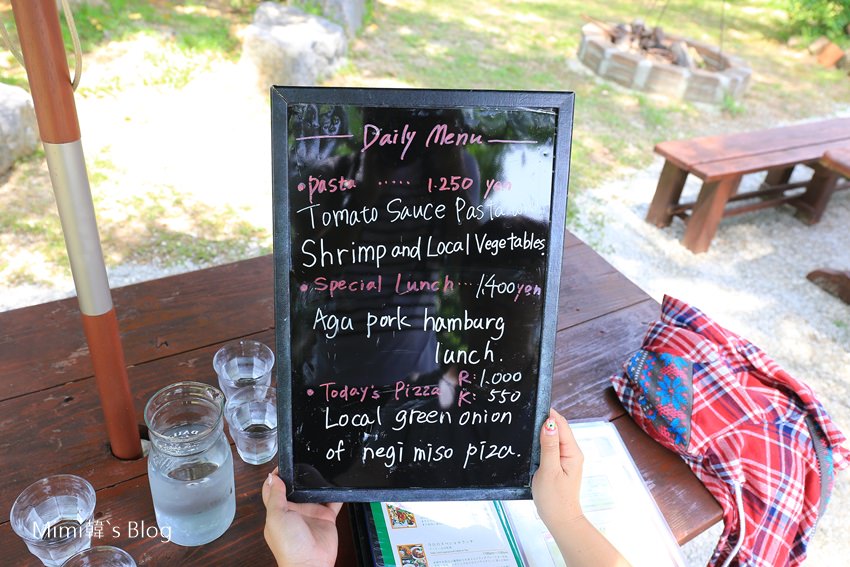 Daily Menu
• Pasta ..... 1.250 yen
Tomato Sauce Pasta
Shrimp and Local Vegetables.
• Special Lunch ... 1,400 yen
Agu pork hamburg
lunch.
• Today's Pizza R: 1.000
K: 550
Local green onion
of negi miso piza.
Mimi韓`s Blog